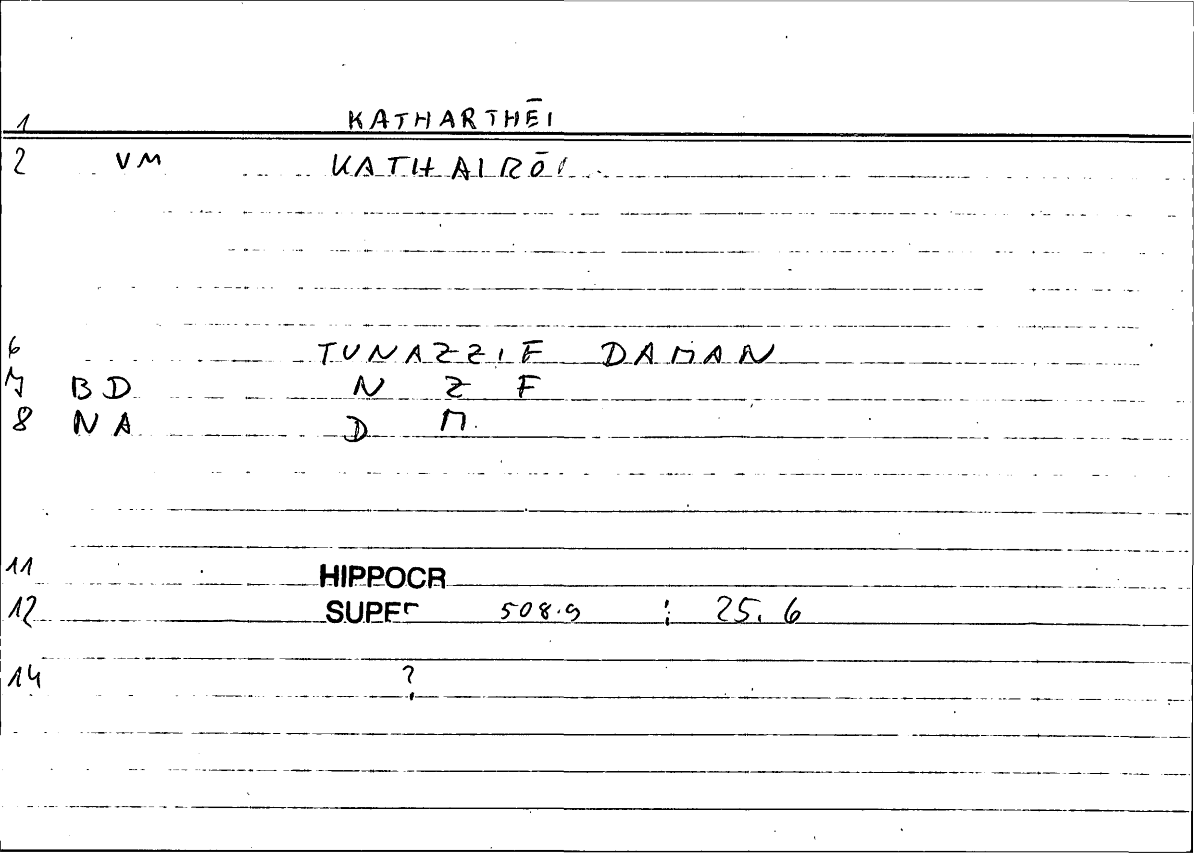 1 KATHARTHĒI
2 VM KATHAIRŌI
6 TUNAZZIF DAMAN
7 BD N Z F
8 NA D M.
11 HIPPOCR
12 SUPER 508.9 : 25.6
14 ?